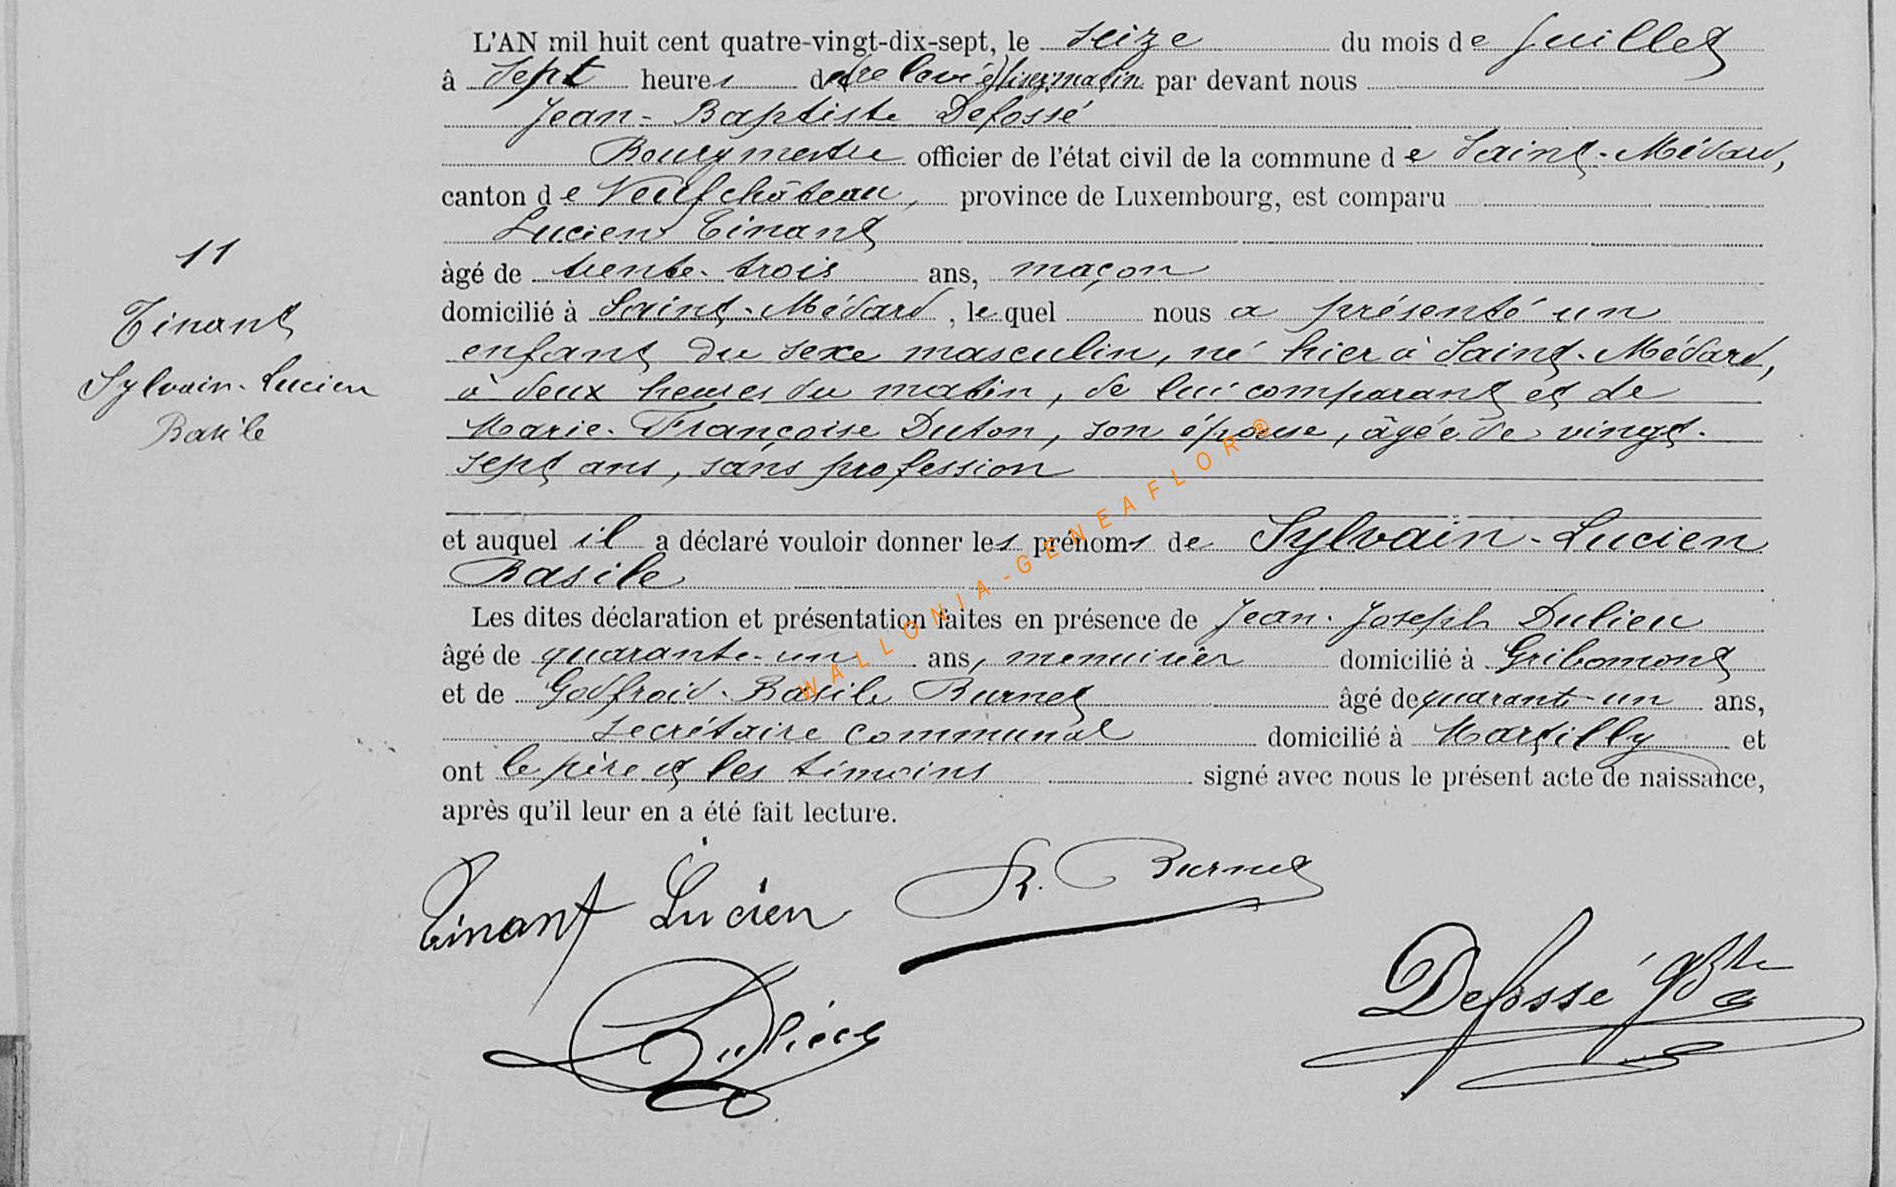 L'AN mil huit cent quatre-vingt-dix-sept, le seize du mois de Juillet
à sept heures matin par devant nous
Jean-Baptiste Defossé
Bourgmestre officier de l'état civil de la commune de Saint-Médard,
canton de Neufchâteau, province de Luxembourg, est comparu
Lucien Tinant
âgé de trente-trois ans, maçon
domicilié à Saint-Médard, lequel nous a présenté un
enfant du sexe masculin, né hier à Saint-Médard,
à deux heures du matin, de lui comparant et de
Marie-Françoise Duton, son épouse, âgée de vingt-
sept ans, sans profession
et auquel il a déclaré vouloir donner les prénoms de Sylvain-Lucien
Basile
Les dites déclaration et présentation faites en présence de Jean-Joseph Dulieu
âgé de quarante-un ans, menuisier domicilié à Gribomont
et de Godfroid-Basile Burnet âgé de quarante-un ans,
secrétaire communal domicilié à Martilly et
ont le père et les témoins signé avec nous le présent acte de naissance,
après qu'il leur en a été fait lecture.
11
Tinant
Sylvain-Lucien
Basile
Tinant Lucien
Burnet
Dulieu
Defossé JBte
WALLONIA-GENEAFLOR®